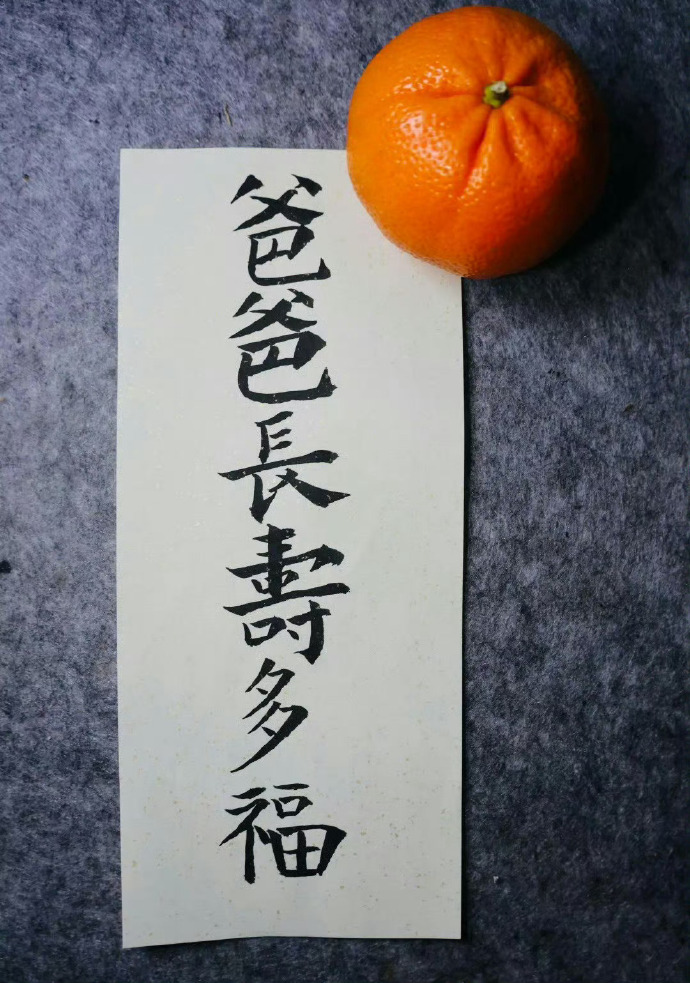 爸爸長壽多福